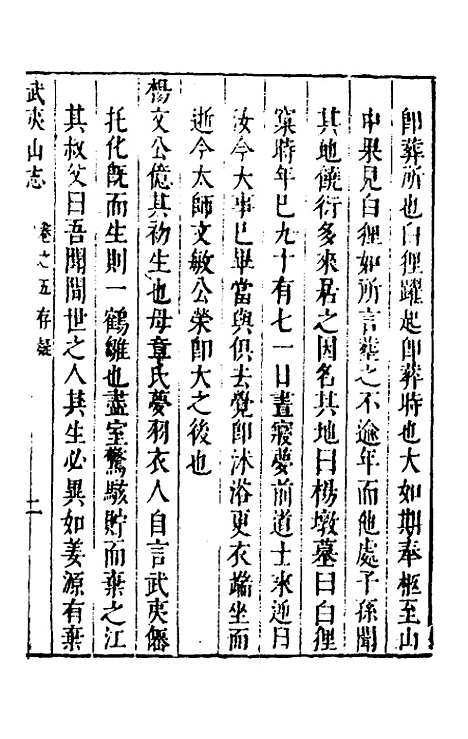 即葬所也白狸躍起即葬時也大如期奉柩至山
中果見白狸如所言葬之不逾年而他處子孫聞
其地饒衍多來居之因名其地曰楊墩墓曰白狸
窠時年已九十有七一日晝寢夢前道士來迎曰
汝今大事已畢當與俱去覺即沐浴更衣端坐而
逝今太師文敏公榮即大之後也
楊文公億其初生也母章氏夢羽衣人自言武夷僊
托化旣而生則一鶴雛也盡室驚駭貯而棄之江
其叔父曰吾聞間世之人其生必異如姜源有棄
武夷山志 卷之五存疑 二